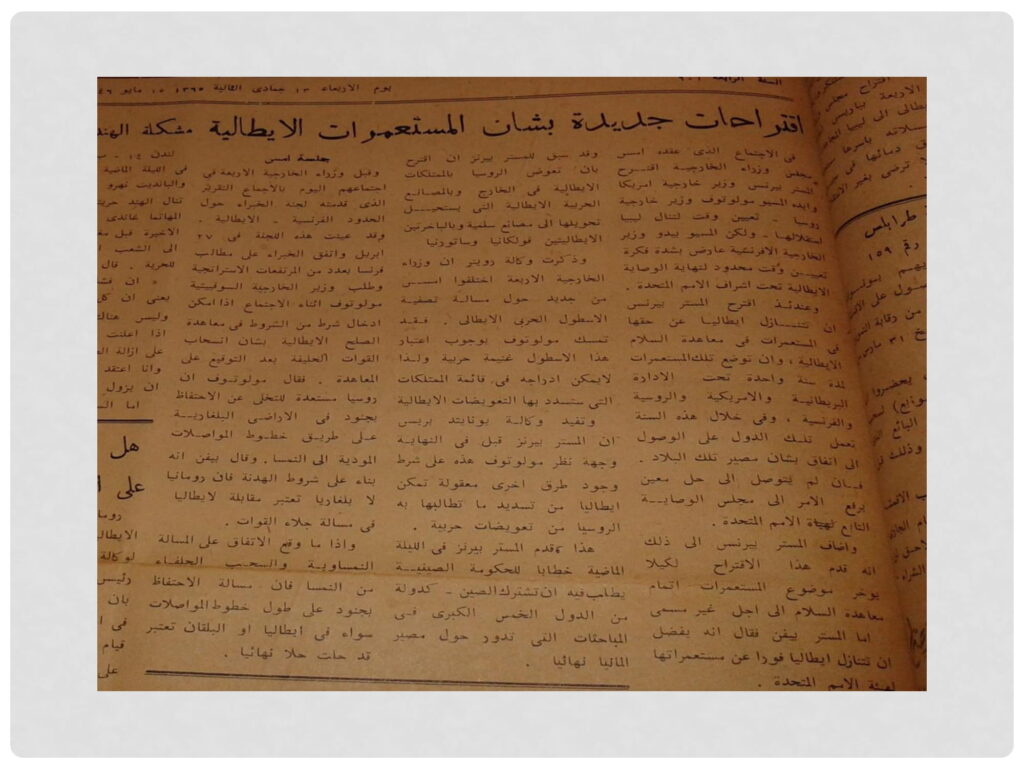 يوم الاربعاء ١٣ جمادى الثانية ١٣٦٥ ١٥ مايو
السنة الرابعة
اقتراحات جديدة بشان المستعمرات الايطالية
فى الاجتماع الذى عقده امس
مجلس وزراء الخارجية اقترح
المستر بيرنس وزير خارجية امريكا
وايده المسيو مولوتوف وزير خارجية
روسيا - تعيين وقت لتنال ليبيا
استقلالها - ولكن المسيو بيدو وزير
الخارجية الافرنسية عارض بشدة فكرة
تعيين وقت محدود لنهاية الوصاية
الايطالية تحت اشراف الامم المتحدة .
وعندئذ اقترح المستر بيرنس
ان تتنازل ايطاليا عن حقها
فى المستعمرات فى معاهدة السلام
الايطالية ، وان توضع تلك المستعمرات
لمدة سنة واحدة تحت الادارة
البريطانية والامريكية والروسية
والفرنسية ، وفى خلال هذه السنة
تعمل تلك الدول على الوصول
الى اتفاق بشان مصير تلك البلاد .
فان لم يتوصل الى حل معين
يرفع الامر الى مجلس الوصاية
التابع لهيئة الامم المتحدة .
واضاف المستر بيرنس الى ذلك
انه قدم هذا الاقتراح لكيلا
يوخر موضوع المستعمرات اتمام
معاهدة السلام الى اجل غير مسمى
اما المستر بيفن فقال انه يفضل
ان تتنازل ايطاليا فورا عن مستعمراتها
لهيئة الامم المتحدة .
وقد سبق للمستر بيرنز ان اقترح
بان تعوض الروسيا بالممتلكات
الايطالية فى الخارج وبالمصانع
الحربية الايطالية التى يستحيل
تحويلها الى مصانع سلمية وبالباخرتين
الايطاليتين فولكانيا وساتورنيا
وذكرت وكالة رويتر ان وزراء
الخارجية الاربعة اختلفوا امس
من جديد حول مسالة تصفية
الاسطول الحربى الايطالى . فقد
تمسك مولوتوف بوجوب اعتبار
هذا الاسطول غنيمة حربية ولذا
لايمكن ادراجه فى قائمة الممتلكات
التى ستسدد بها التعويضات الايطالية
وتفيد وكالة يونايتد بريس
ان المستر بيرنز قبل فى النهاية
وجهة نظر مولوتوف هذه على شرط
وجود طرق اخرى معقولة تمكن
ايطاليا من تسديد ما تطالبها به
الروسيا من تعويضات حربية .
هذا وقدم المستر بيرنز فى الليلة
الماضية خطابا للحكومة الصينية
يطلب فيه ان تشترك الصين - كدولة
من الدول الخمس الكبرى فى
المباحثات التى تدور حول مصير
المانيا نهائيا .
جلسة امس
وقبل وزراء الخارجية الاربعة فى
اجتماعهم اليوم بالاجماع التقرير
الذى قدمته لجنة الخبراء حول
الحدود الفرنسية - الايطالية .
وقد عينت هذه اللجنة فى ٢٧
ابريل واتفق الخبراء على مطالب
فرنسا بعدد من المرتفعات الاستراتجية
وطلب وزير الخارجية السوفيتية
مولوتوف اثناء الاجتماع اذا امكن
ادخال شرط من الشروط فى معاهدة
الصلح الايطالية بشان انسحاب
القوات الحليفة بعد التوقيع على
المعاهدة . فقال مولوتوف ان
روسيا مستعدة للتخلى عن الاحتفاظ
بجنود فى الاراضى البلغارية
على طريق خطوط المواصلات
المودية الى النمسا . وقال بيفن انه
بناء على شروط الهدنة فان رومانيا
لا بلغاريا تعتبر مقابلة لايطاليا
فى مسالة جلاء القوات .
واذا ما وقع الاتفاق على المسالة
النمساوية والسحب الحلفاء
من النمسا فان مسالة الاحتفاظ
بجنود على طول خطوط المواصلات
سواء فى ايطاليا او البلقان تعتبر
قد حلت حلا نهائيا .
مشكلة الهند
لندن ١٤ -
فى الليلة الماضية
والبانديت نهرو
تنال الهند حريتها
المهاتما غاندى
الاخيرة قبل
الى الشعب
للحرية . قال
يعنى ان
وليس هناك
اذا اعلنت
على ازالة
وانا اعتقد
ان يزول
اما
هل
على
الايطالية
لوكالة
رئيس
بان
فى
قيام
على
اقتراح مجلس
الاربعة بباريس
ايطالى الى ليبيا
باسرها
دمائها فى
ترضى بغير
طرابلس
رقم ١٥٩
على
من رقابة
٣١ مارس
يحضروا
البائع
وذلك